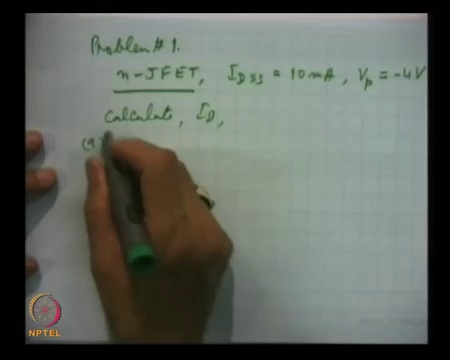 Problem # 1.
n-JFET, I_DSS = 10mA, V_p = -4V
Calculate, I_D,
(a)
NPTEL